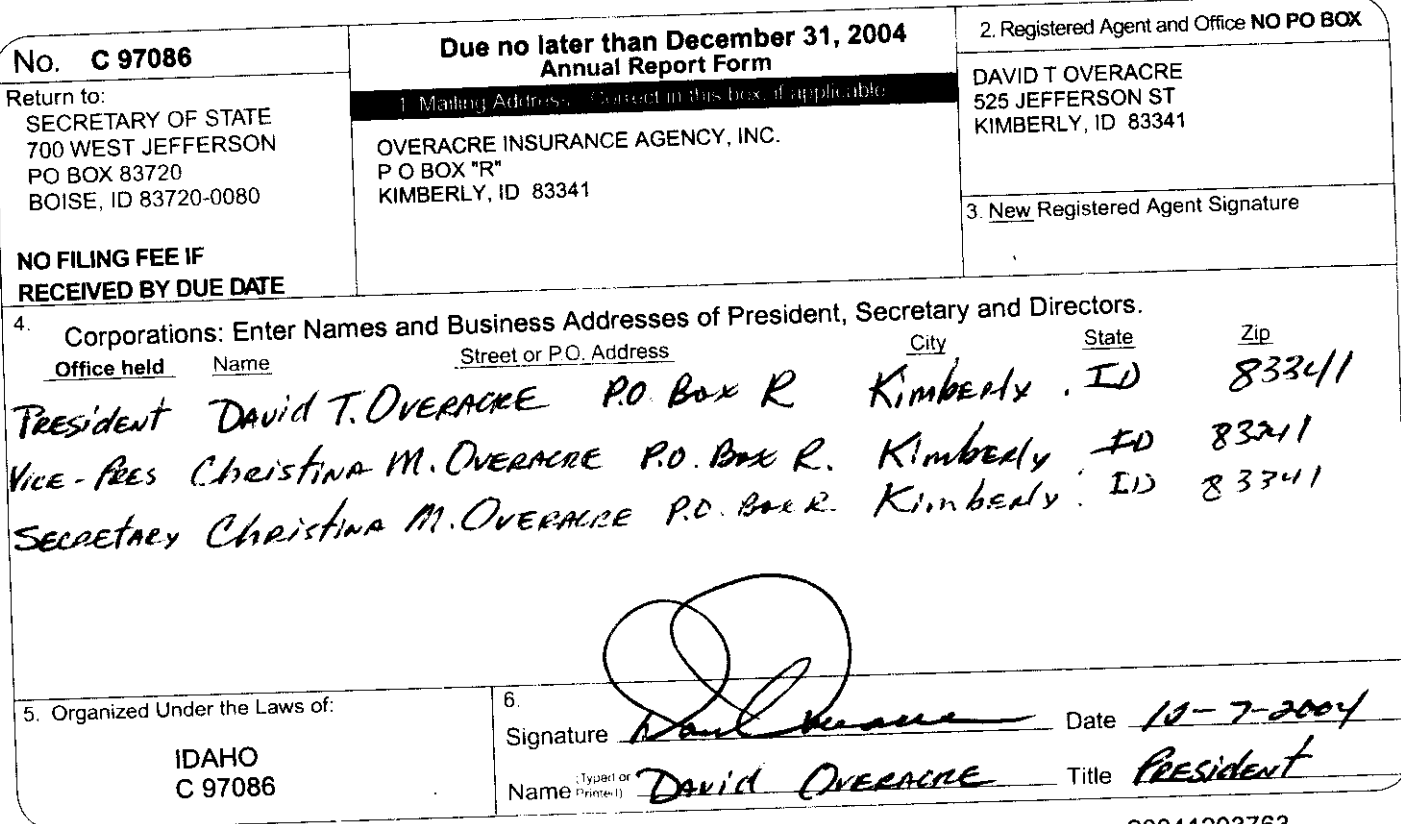 No. C 97086
Return to:
SECRETARY OF STATE
700 WEST JEFFERSON
PO BOX 83720
BOISE, ID 83720-0080
NO FILING FEE IF
RECEIVED BY DUE DATE
Due no later than December 31, 2004
Annual Report Form
1. Mailing Address: Correct in this box, if applicable
OVERACRE INSURANCE AGENCY, INC.
P O BOX "R"
KIMBERLY, ID 83341
2. Registered Agent and Office NO PO BOX
DAVID T OVERACRE
525 JEFFERSON ST
KIMBERLY, ID 83341
3. New Registered Agent Signature
4. Corporations: Enter Names and Business Addresses of President, Secretary and Directors.
Office held Name Street or P.O. Address City State Zip
President David T. Overacre P.O. Box R Kimberly. ID 83341
Vice-Pres Christina M. Overacre P.O. Box R. Kimberly ID 83341
Secretary Christina M. Overacre P.O. Box R. Kimberly. ID 83341
5. Organized Under the Laws of:
IDAHO
C 97086
6.
Signature Date 10-7-2004
Name (Typed or Printed) David Overacre Title President